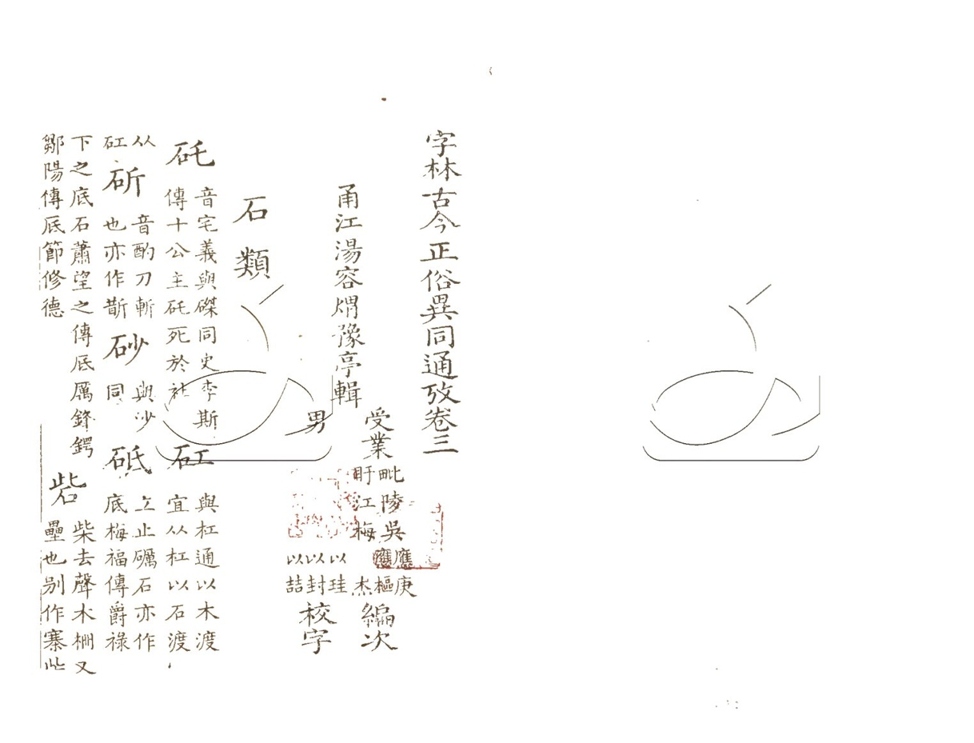 字林古今正俗異同通攷卷三
甬江湯容煟豫亭輯
受業
毗陵吳應庚
盱江梅應樞杰
編次
男
以珪
以封
以喆
校字
石類
矺
音宅義與磔同史李斯
傳十公主矺死於社
矼
與杠通以木渡
宜从杠以石渡
从
矼
斫
音酌刀斬
也亦作斮
砂
與沙
同
砥
上止礪石亦作
底梅福傳爵祿
下之底石蕭望之傳底厲鋒鍔
鄒陽傳底節修德
砦
柴去聲木柵又
壘也别作寨些